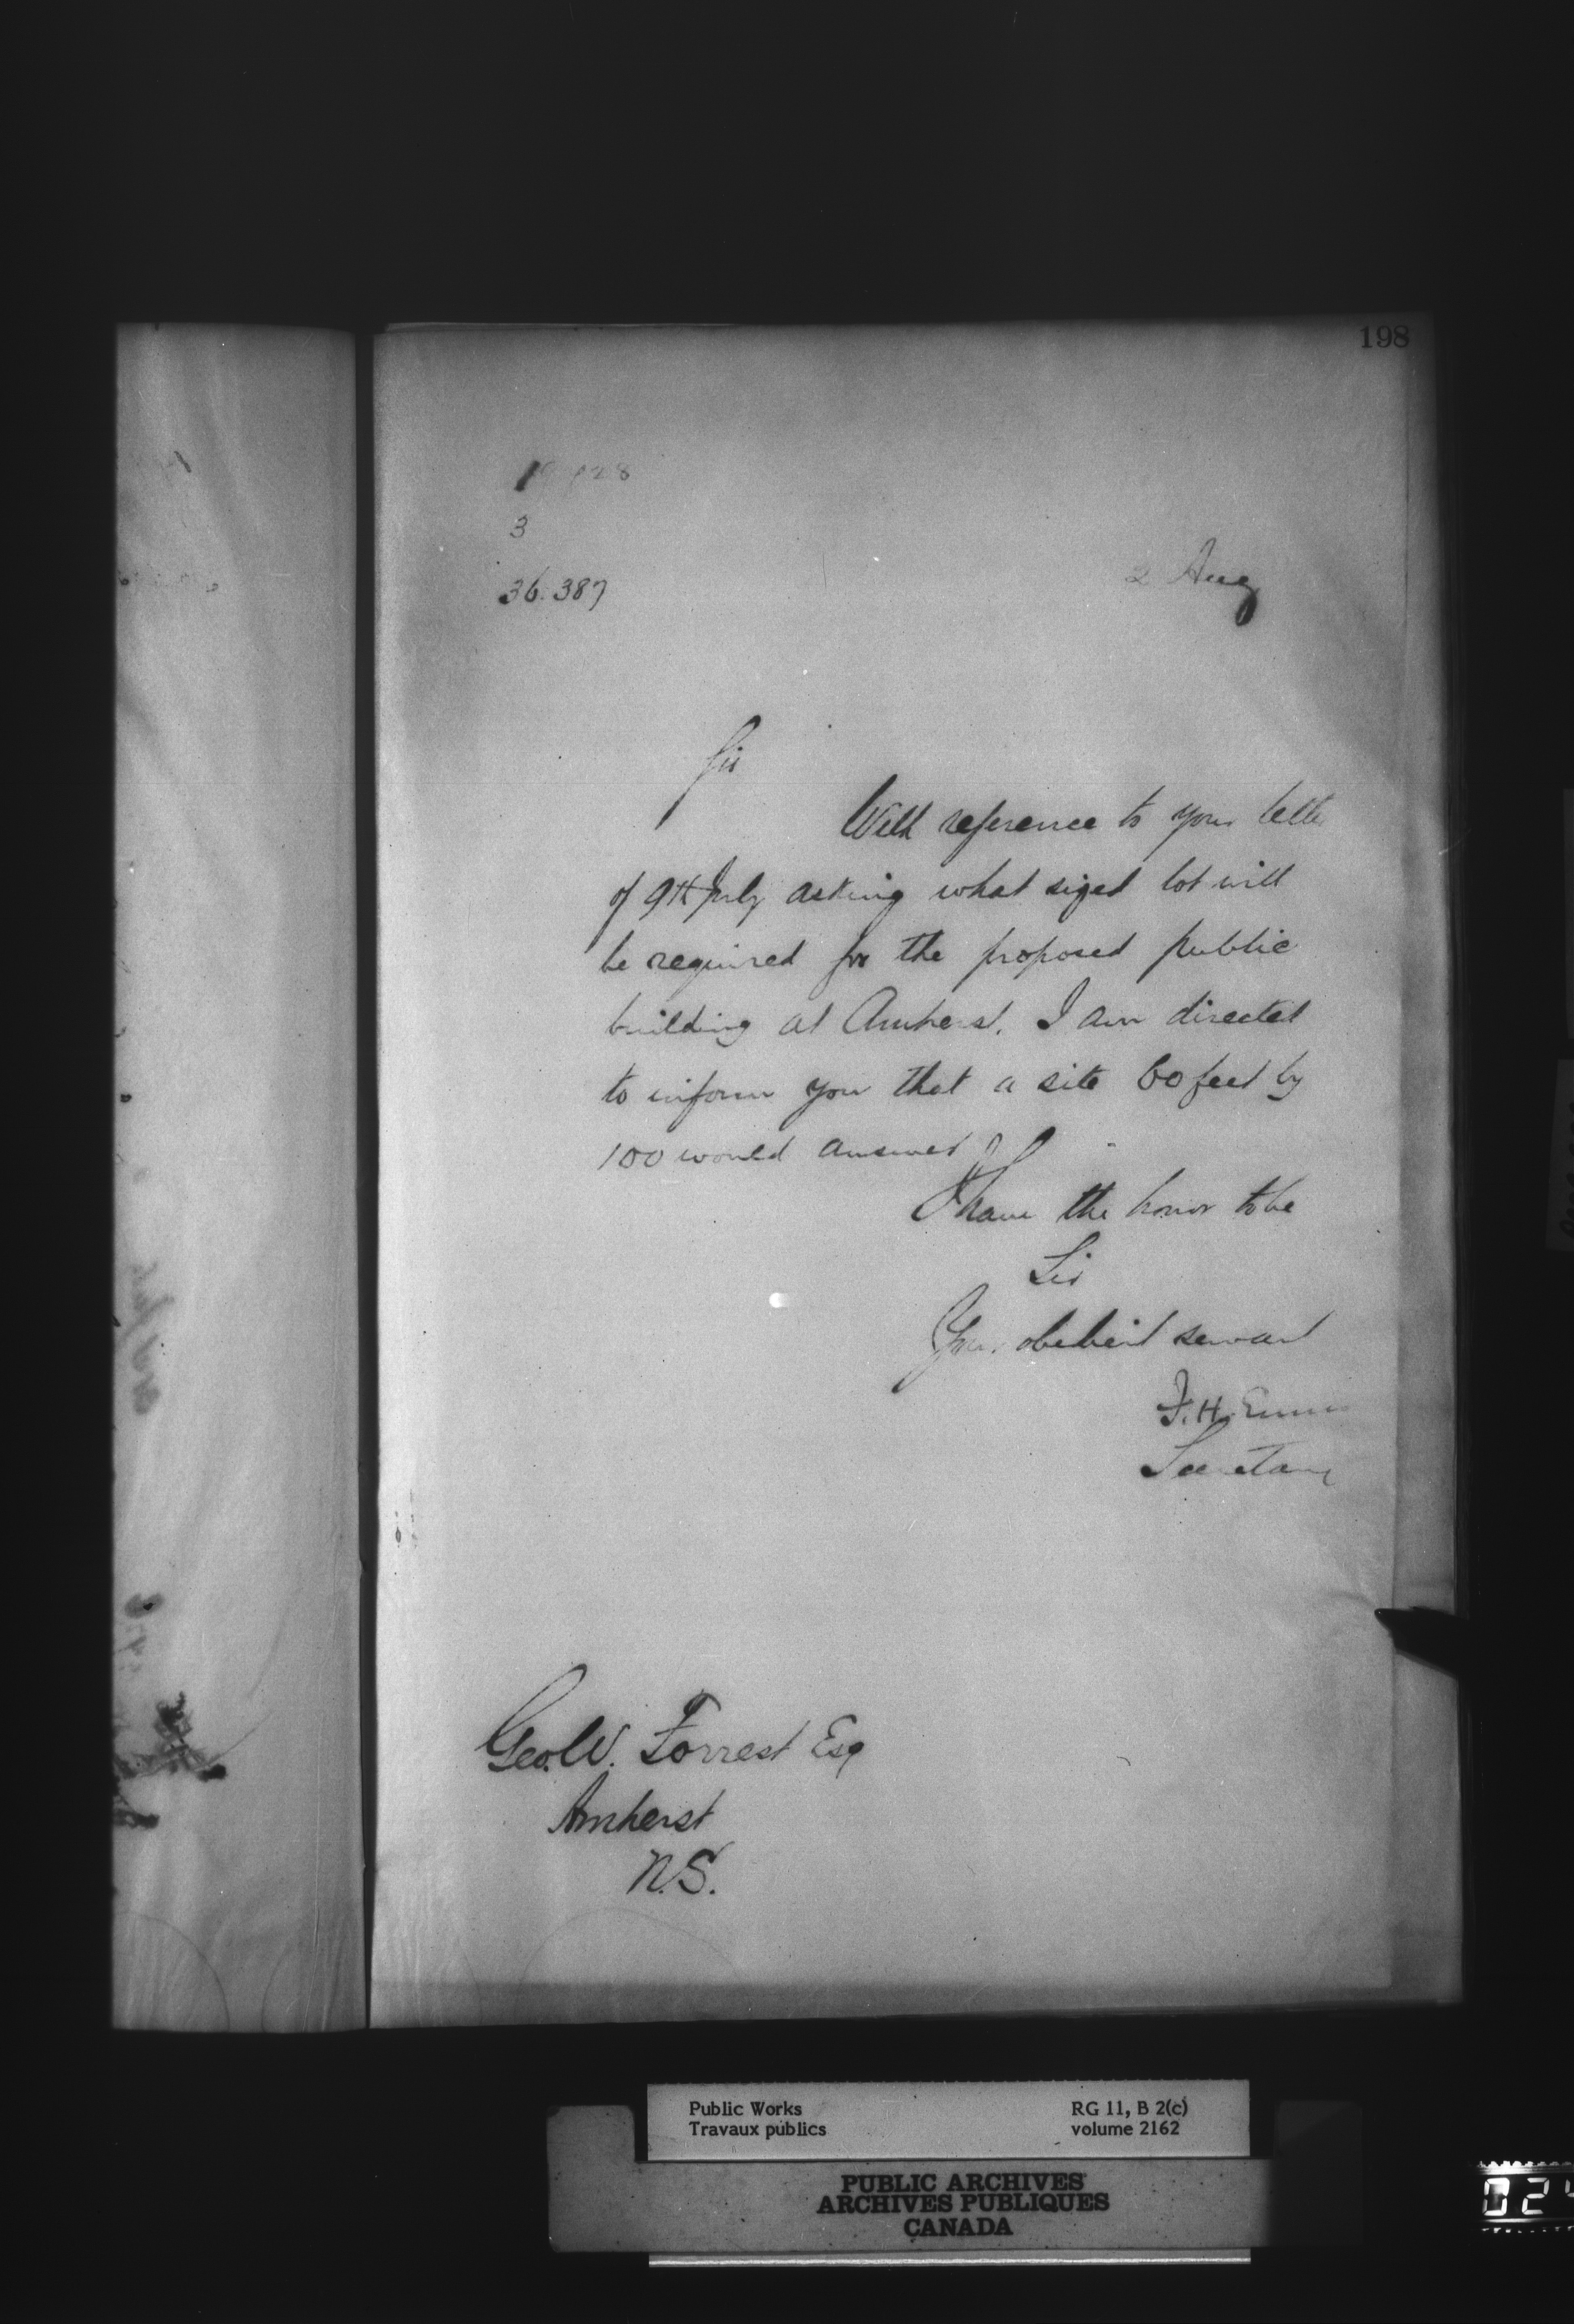 198
3
36.387
2 Aug
Sir
With reference to your letter
of 9th July asking what sized lot will
be required for the proposed public
building at Amherst. I am directed
to inform you that a site 60 feet by
100 would answer
I have the honor to be
Sir
Your obedient servant
F. H. Ennis
Secretary
Geo. W. Forrest Esq
Amherst
N.S.
Public Works
Travaux publics
RG 11, B 2(c)
volume 2162
PUBLIC ARCHIVES
ARCHIVES PUBLIQUES
CANADA